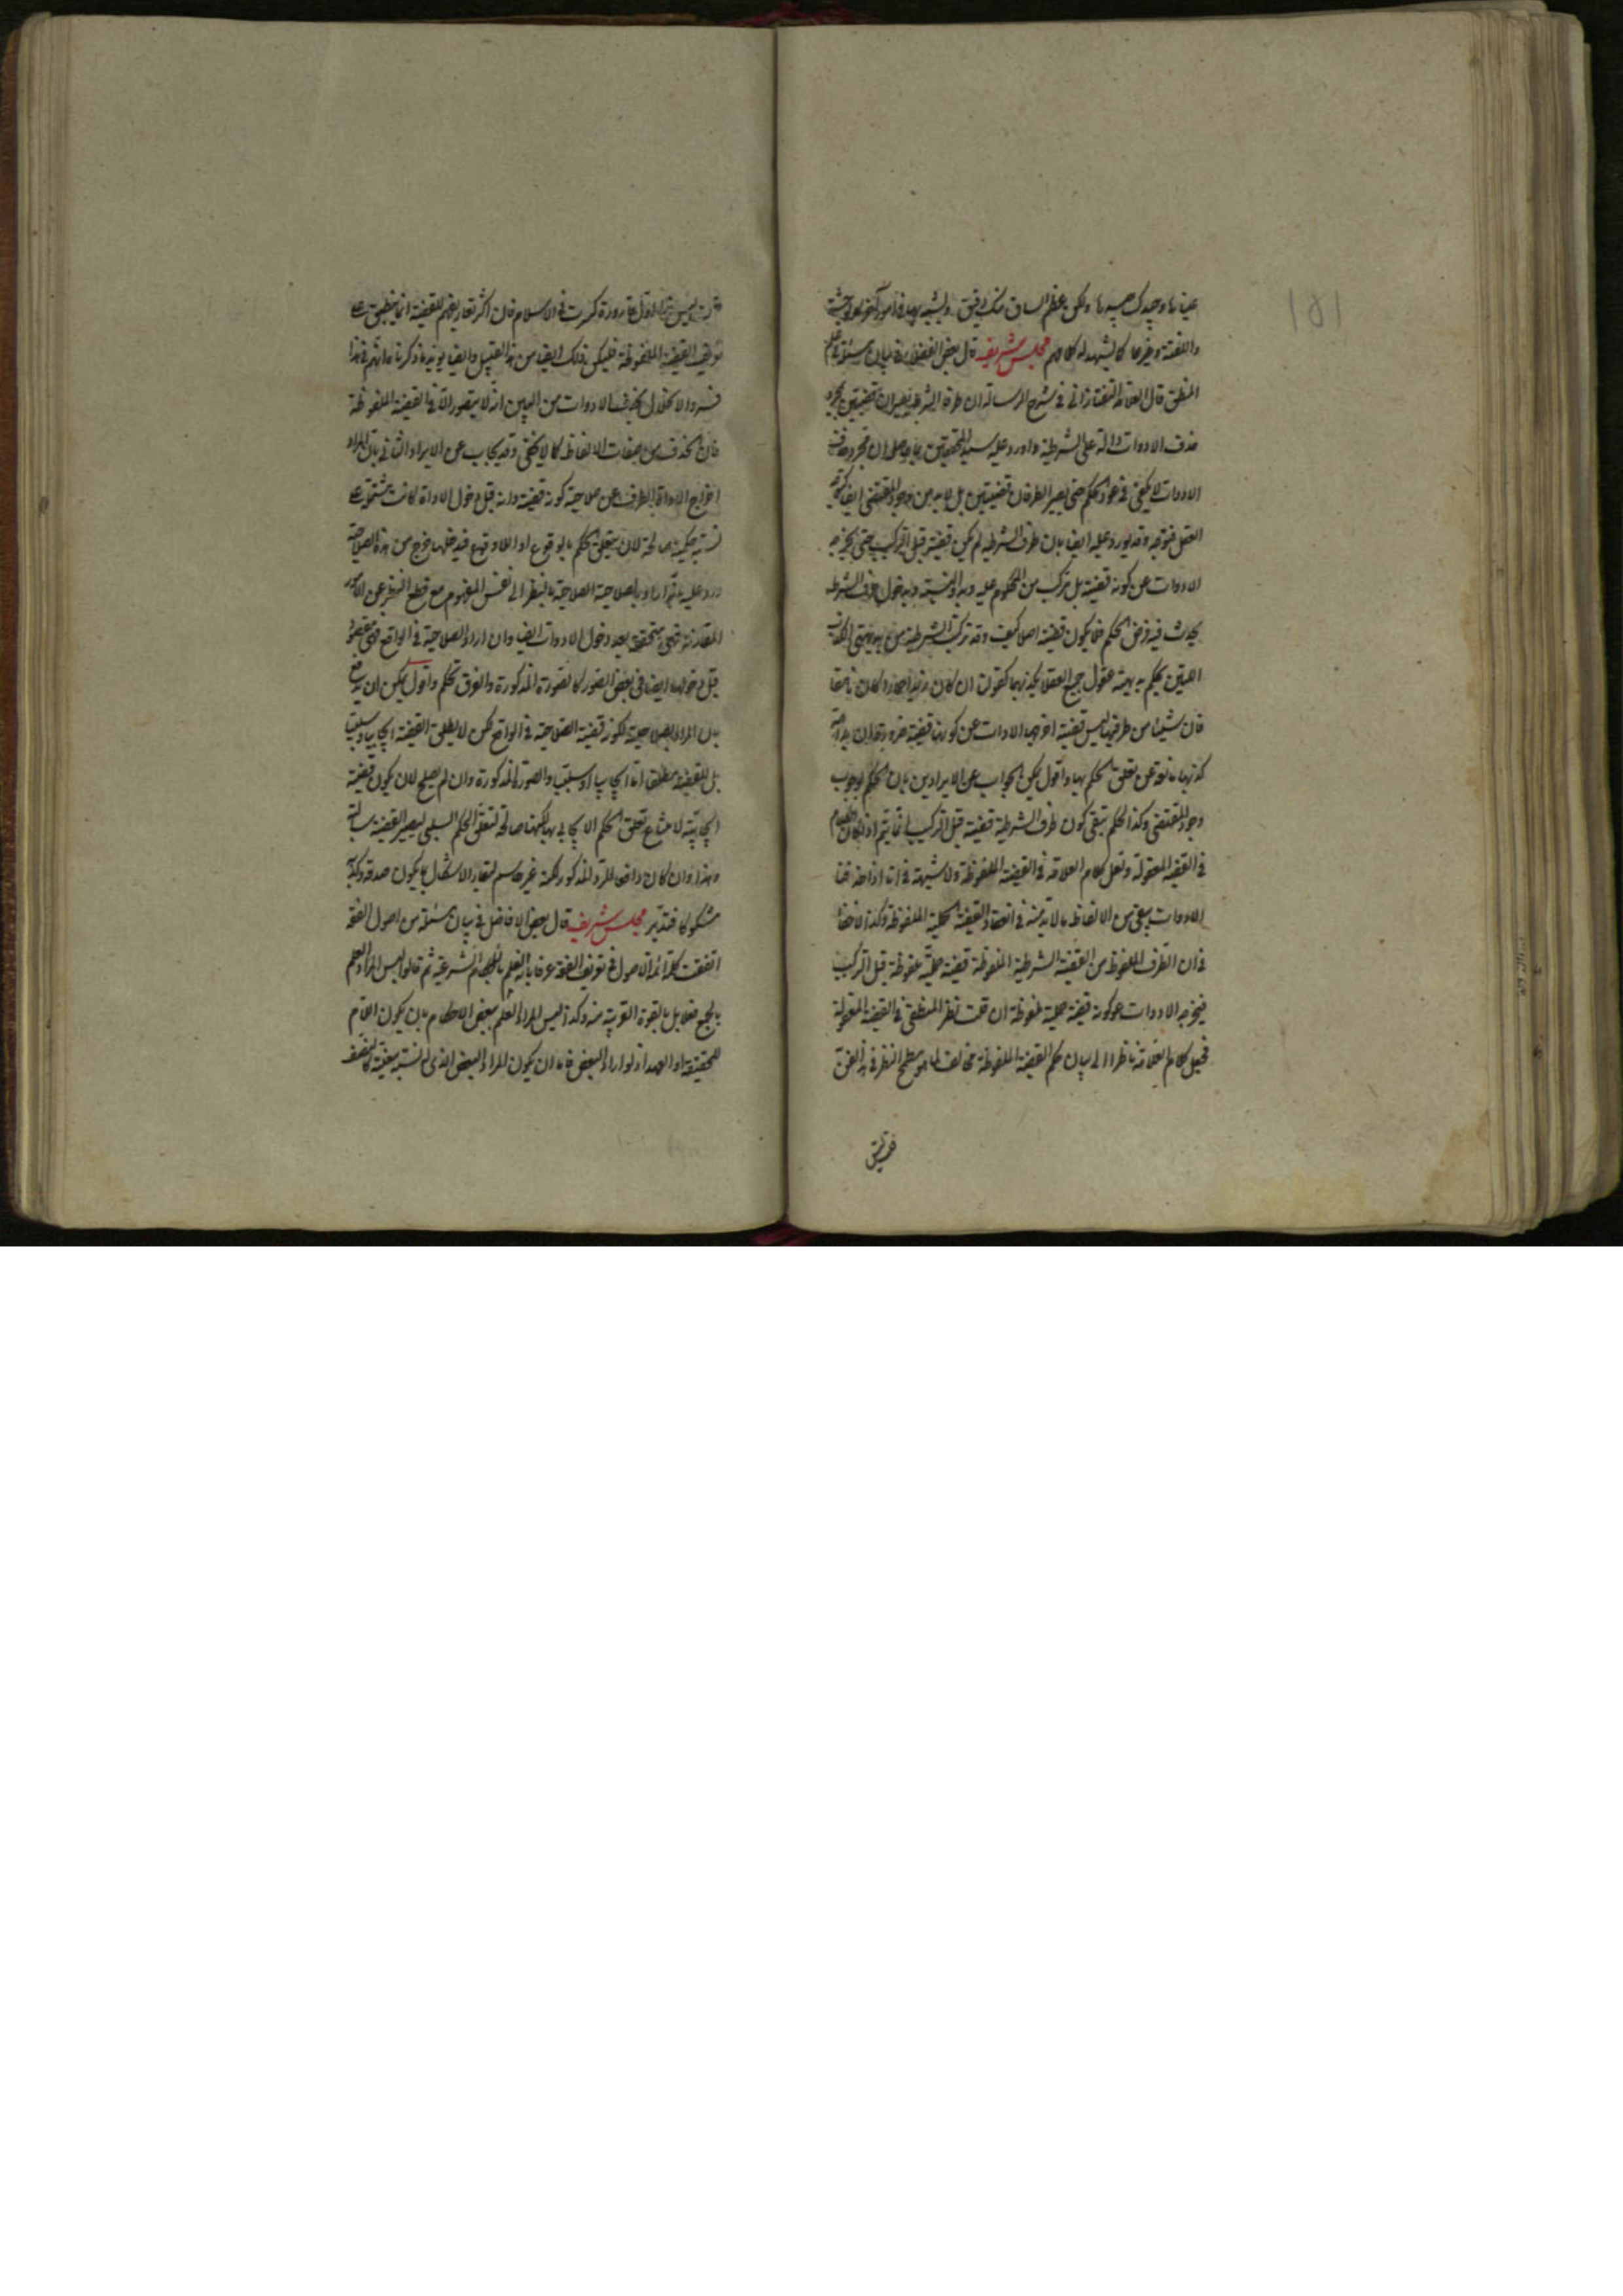 عيناها وجيدك جيدها ولكن عظم الساق منك دقيق
واللغة وغيرها كما يشهد له كلامهم مجلس شريف قال بعض الفضلاء في بيان مسئلة من علم
المنطق قال العلامة التفتازاني في شرح الرسالة ان طرفي الشرطية يصيران قضيتين بمجرد
حذف الادوات الدالة على الشرطية واورد عليه سيد المحققين بما حاصله ان مجرد حذف
الادوات لا يكفي في عود الحكم حتى يصير الطرفان قضيتين بل لا بد من وجود المقتضي ايضا
العقل فتوجه وقد يورد عليه ايضا بان طرف الشرطية لم يكن قضية قبل التركيب حتى يخرجه
الادوات عن كونه قضية بل تركب من المحكوم عليه وبه والنسبة وبدخول حرف الشرط
يحدث فيه فرض الحكم فلا يكون قضية اصلا كيف وقد تركب الشرطية من بديهتي الكذب
اللتين يحكم بديهة عقول جميع العقلاء بكذبهما كقولنا ان كان زيد حمارا كان ناهقا
فان شيئا من طرفيها ليس قضية اخرجها الادوات عن كونها قضية ضرورة ان بداهة
كذبها مانعة عن تعلق الحكم بها واقول يمكن الجواب عن الايرادين بان الحكم بوجوب
وجود المقتضي وكذا الحكم بنفي كون طرف الشرطية قضية قبل التركيب انما يتم اذا كان الكلام
في القضية المعقولة ولعل كلام العلامة في القضية الملفوظة ولا شبهة في انا اذا حذفنا
الادوات يبقى من الالفاظ ما لا بد منه في انعقاد القضية الحملية الملفوظة وكذا لا خفاء
في ان الطرف الملفوظ من القضية الشرطية الملفوظة قضية حملية ملفوظة قبل التركيب
فيخرجه الادوات عن كونه قضية حملية ملفوظة ان قلت نظر المنطقي في القضية المعقولة
فجعل كلام العلامة ناظرا الى بيان حكم القضية الملفوظة مخالف لما هو مطمح النظر في هذا الفن
قلت ليس هذا اول قارورة كسرت في الاسلام فان اكثر تعاريفهم للقضية انما ينطبق على
تعريف القضية الملفوظة فليكن ذلك ايضا من هذا القبيل وايضا يؤيد ما ذكرنا ما انهم
فسروا الانحلال بحذف الادوات من البين انه لا يتصور الا في القضية الملفوظة
فان الحذف من صفات الالفاظ كما لا يخفى وقد يجاب عن الايراد الثاني بان المراد
اخراج الاداة الطرف عن صلاحية كونه قضية وانه قبل دخول الاداة كانت مشتملة على
نسبة حكمية صالحة لان يتعلق الحكم بالوقوع او اللاوقوع فبدخولها خرج من هذه الصلاحية
ورد عليه بانه ان اراد بالصلاحية الصلاحية بالنظر الى نفس المفهوم مع قطع النظر عن الامور
المقارنة فهي متحققة بعد دخول الادوات ايضا وان اراد الصلاحية في الواقع فهي مفقودة
قبل دخولها ايضا في بعض الصور كالصورة المذكورة والفرق تحكم واقول يمكن ان يدفع
بان المراد بالصلاحية لكونه قضية الصلاحية في الواقع لكن لا يطلق القضية ايجابية او سلبية
بل للقضية مطلقا اما ايجابا او سلبا والصورة المذكورة وان لم يصلح لان يكون قضية
ايجابية لامتناع تعلق الحكم الايجابي بها لكنها صالحة لتعلق الحكم السلبي ليصير القضية سالبة
وهذا وان كان دافعا للرد المذكور لكنه غير حاسم لبقاء الاشكال بما يكون صدقه وكذبه
مشكوكا فتدبر مجلس شريف قال بعض الافاضل في بيان مسئلة من اصول الفقه
اتفقت كلمة ائمة الاصول في تعريف الفقه عرفا بانه العلم بالاحكام الشرعية ثم قالوا ليس المراد العلم
بالجميع فعلا بل بالقوة القريبة منه وكذا ليس المراد العلم ببعض الاحكام بان يكون اللام
للحقيقة او العهد اذ لو اراد البعض فاما ان يكون المراد البعض الذي له نسبة معينة كالنصف